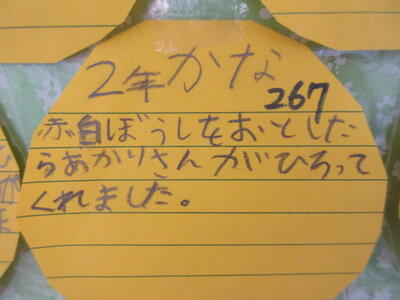 2年かな
267
赤白ぼうしをおとした
らあかりさんがひろって
くれました。